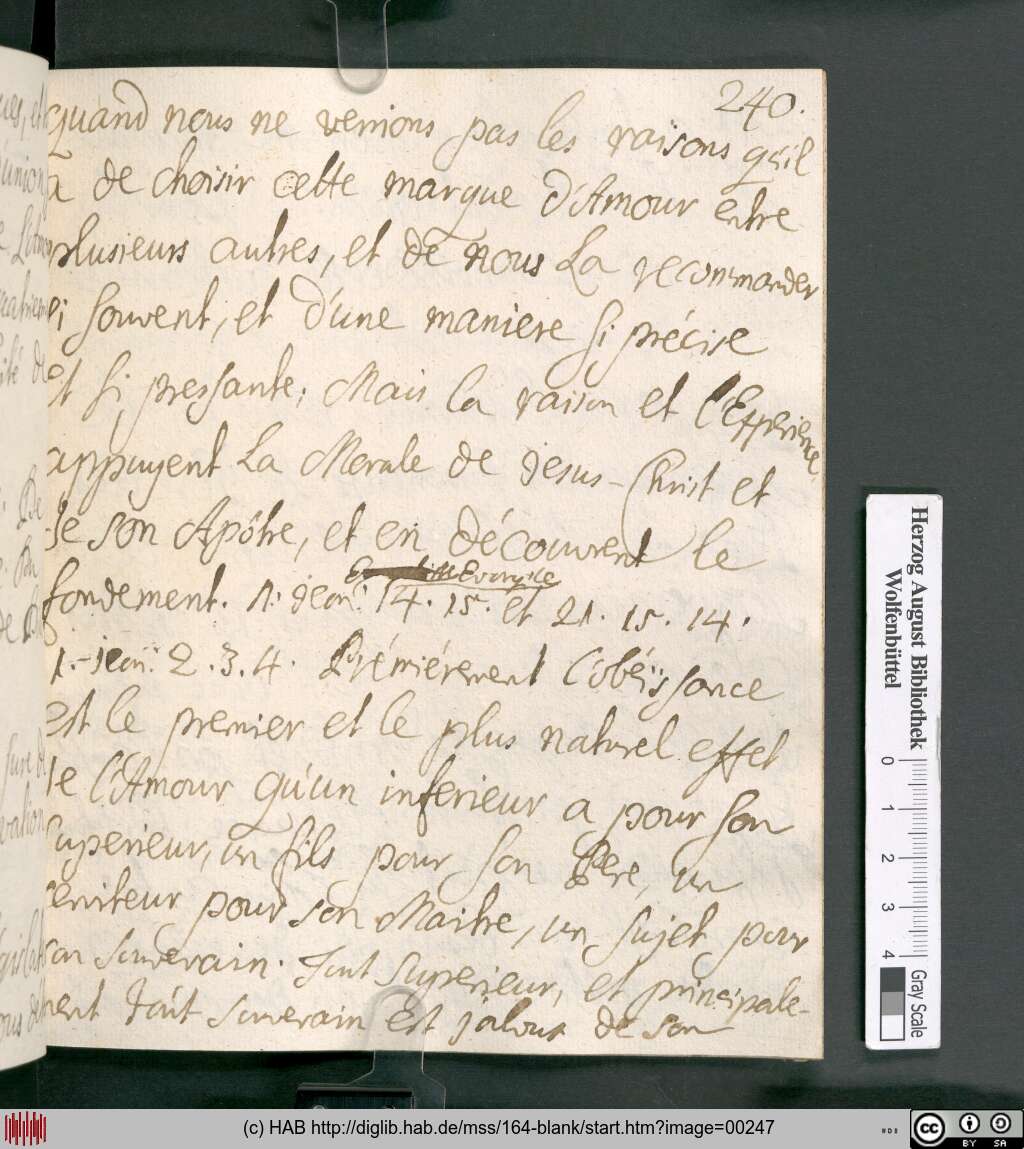 240.
quand nous ne verrions pas les raisons qu'il
a de choisir cette marque d'Amour entre
plusieurs autres, et de nous La recommander
si souvent, et d'une maniere si précise
et si pressante; Mais la raison et l'Experience
appuyent La Morale de Jesus-Christ et
de son Apôtre, et en découvrent le
Evangile
fondement. 1. Jean. 14. 15. et 21. 15. 14.
1. Jean. 2. 3. 4. Prémiérement l'obéïssance
est le premier et le plus naturel effet
de l'Amour qu'un inferieur a pour son
superieur, un fils pour son Pere, un
serviteur pour son Maitre, un sujet pour
son souverain. Tout superieur, et principale-
ment tout souverain est jaloux de son
Herzog August Bibliothek
Wolfenbüttel
0 1 2 3 4
Gray Scale
(c) HAB http://diglib.hab.de/mss/164-blank/start.htm?image=00247
cc BY SA